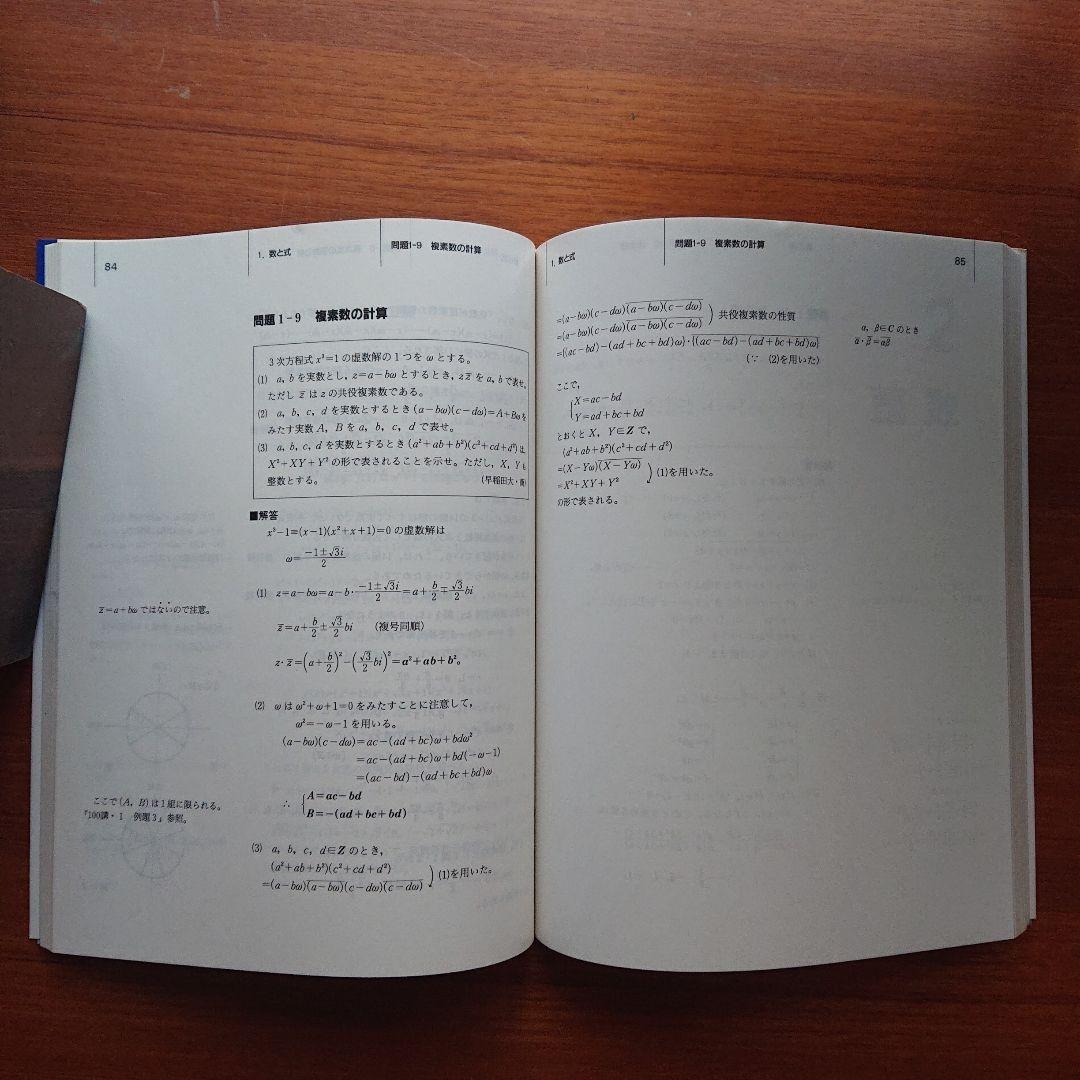 84
1. 数と式
問題1-9 複素数の計算
問題1-9 複素数の計算
3次方程式 x³=1 の虚数解の1つを ω とする。
(1) a, b を実数とし, z=a−bω とするとき, zz̅ を a, b で表せ。
ただし z̅ は z の共役複素数である。
(2) a, b, c, d を実数とするとき (a−bω)(c−dω)=A+Bω を
みたす実数 A, B を a, b, c, d で表せ。
(3) a, b, c, d を実数とするとき (a²+ab+b²)(c²+cd+d²) は
X²+XY+Y² の形で表されることを示せ。ただし, X, Y も
整数とする。
(早稲田大・商)
■解答
x³−1=(x−1)(x²+x+1)=0 の虚数解は
ω=(−1±√3i)/2
(1) z=a−bω=a−b·(−1±√3i)/2=a+b/2∓(√3/2)bi
z̅=a+b/2±(√3/2)bi (複号同順)
z·z̅=(a+b/2)²−((√3/2)bi)²=a²+ab+b²。
z̅=a+bω ではないので注意。
(2) ω は ω²+ω+1=0 をみたすことに注意して,
ω²=−ω−1 を用いる。
(a−bω)(c−dω)=ac−(ad+bc)ω+bdω²
=ac−(ad+bc)ω+bd(−ω−1)
=(ac−bd)−(ad+bc+bd)ω
∴ {A=ac−bd
B=−(ad+bc+bd)
ここで (A, B) は1組に限られる。
『100講・1 例題3』参照。
(3) a, b, c, d∈Z のとき,
(a²+ab+b²)(c²+cd+d²)
=(a−bω)(a−bω)‾(c−dω)(c−dω)‾ ) (1)を用いた。
1. 数と式
問題1-9 複素数の計算
85
=(a−bω)(c−dω)(a−bω)‾(c−dω)‾
=(a−bω)(c−dω)(a−bω)(c−dω)‾ ) 共役複素数の性質
={(ac−bd)−(ad+bc+bd)ω}·{(ac−bd)−(ad+bc+bd)ω}‾
(∵ (2)を用いた)
α, β∈C のとき
α̅·β̅=αβ‾
ここで,
{X=ac−bd
Y=ad+bc+bd
とおくと X, Y∈Z で,
(a²+ab+b²)(c²+cd+d²)
=(X−Yω)(X−Yω)‾
=X²+XY+Y² ) (1)を用いた。
の形で表される。